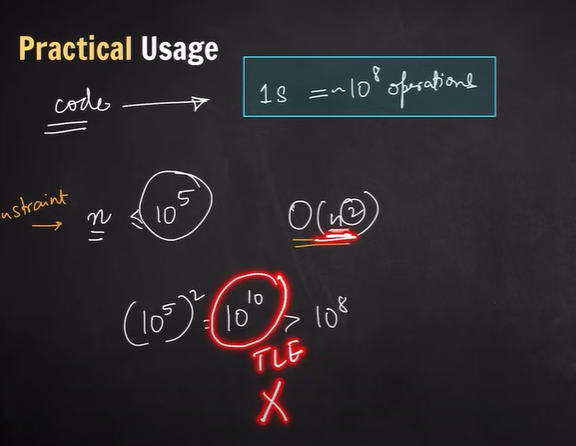 Practical Usage
code → 1s = ~10⁸ operations
nstraint → n ≤ 10⁵ O(n²)
(10⁵)² = 10¹⁰ > 10⁸
TLE
X